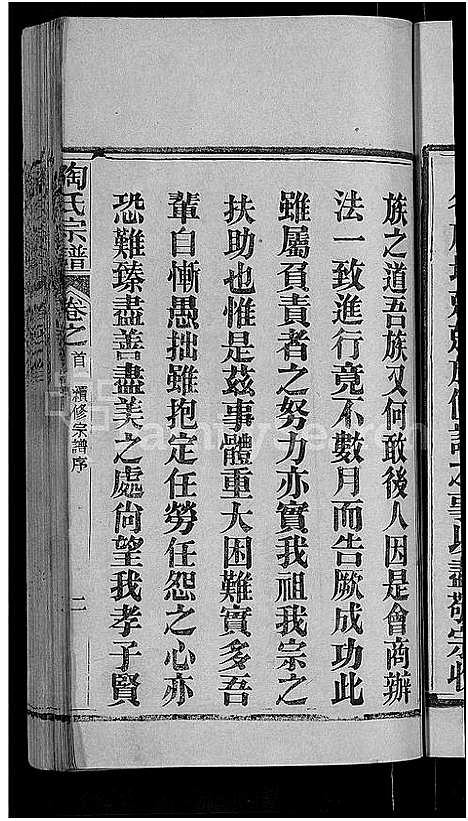 族之道吾族又何敢後人因是會商辦
法一致進行竟不數月而告厥成功此
雖屬負責者之努力亦實我祖我宗之
扶助也惟是茲事體重大困難實多吾
輩自慚愚拙雖抱定任勞任怨之心亦
恐難臻盡善盡美之處尙望我孝子賢
陶氏宗譜
卷之首
續修宗譜序
二